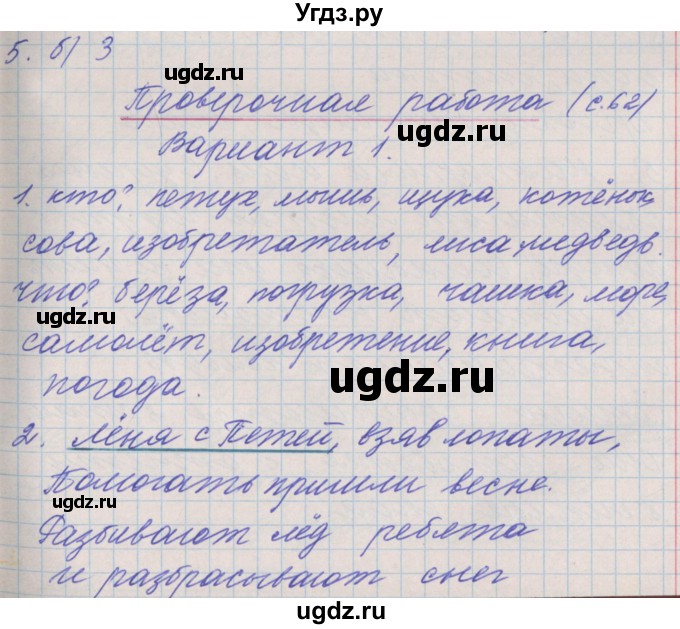 Угдз.ру
5. б) 3
ugdz.ru
Проверочная работа (с.62)
ugdz.ru
Вариант 1.
1. кто? петух, мышь, щука, котёнок,
сова, изобретатель, лиса, медведь.
что? берёза, погрузка, чашка, море,
ugdz.ru
самолёт, изобретение, книга,
ugdz.ru
погода.
2. Лёня с Петей, взяв лопаты,
Помогать пришли весне.
ugdz.ru
ugdz.ru
Разбивают лёд ребята
и разбрасывают снег
ugdz.ru